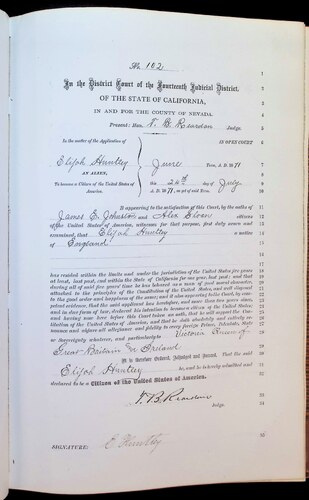 No 102
In the District Court of the Fourteenth Judicial District,
OF THE STATE OF CALIFORNIA,
IN AND FOR THE COUNTY OF NEVADA.
Present: Hon. T. B. Reardan Judge.
In the matter of the Application of
Elijah Huntley
AN ALIEN,
To become a Citizen of the United States of America.
IN OPEN COURT
June Term, A. D. 1871
this 26th day of July
A. D. 1871
It appearing to the satisfaction of this Court, by the oaths of
James E. Johnston and Alex Sloan citizens
of the United States, witnesses for that purpose, first duly sworn and
examined, that Elijah Huntley a native
of England
has resided within the limits and under the jurisdiction of the United States five years
at least, last past, and within the State of California for one year last past; and that
during all of said five years' time he has behaved as a man of good moral character,
attached to the principles of the Constitution of the United States, and well disposed
to the good order and happiness of the same; and it also appearing to the Court, by com-
petent evidence, that the said applicant has heretofore, and more than two years since,
and in due form of law, declared his intention to become a citizen of the United States;
and having now here before this Court taken an oath, that he will support the Con-
stitution of the United States of America, and that he does absolutely and entirely re-
nounce and abjure all allegiance and fidelity to every foreign Prince, Potentate, State
or Sovereignty whatever, and particularly to Victoria Queen of
Great Britain & Ireland
It is therefore Ordered, Adjudged and Decreed, that the said
Elijah Huntley be, and he is hereby admitted and
declared to be a Citizen of the United States of America.
T. B. Reardan
Judge.
SIGNATURE: E Huntley